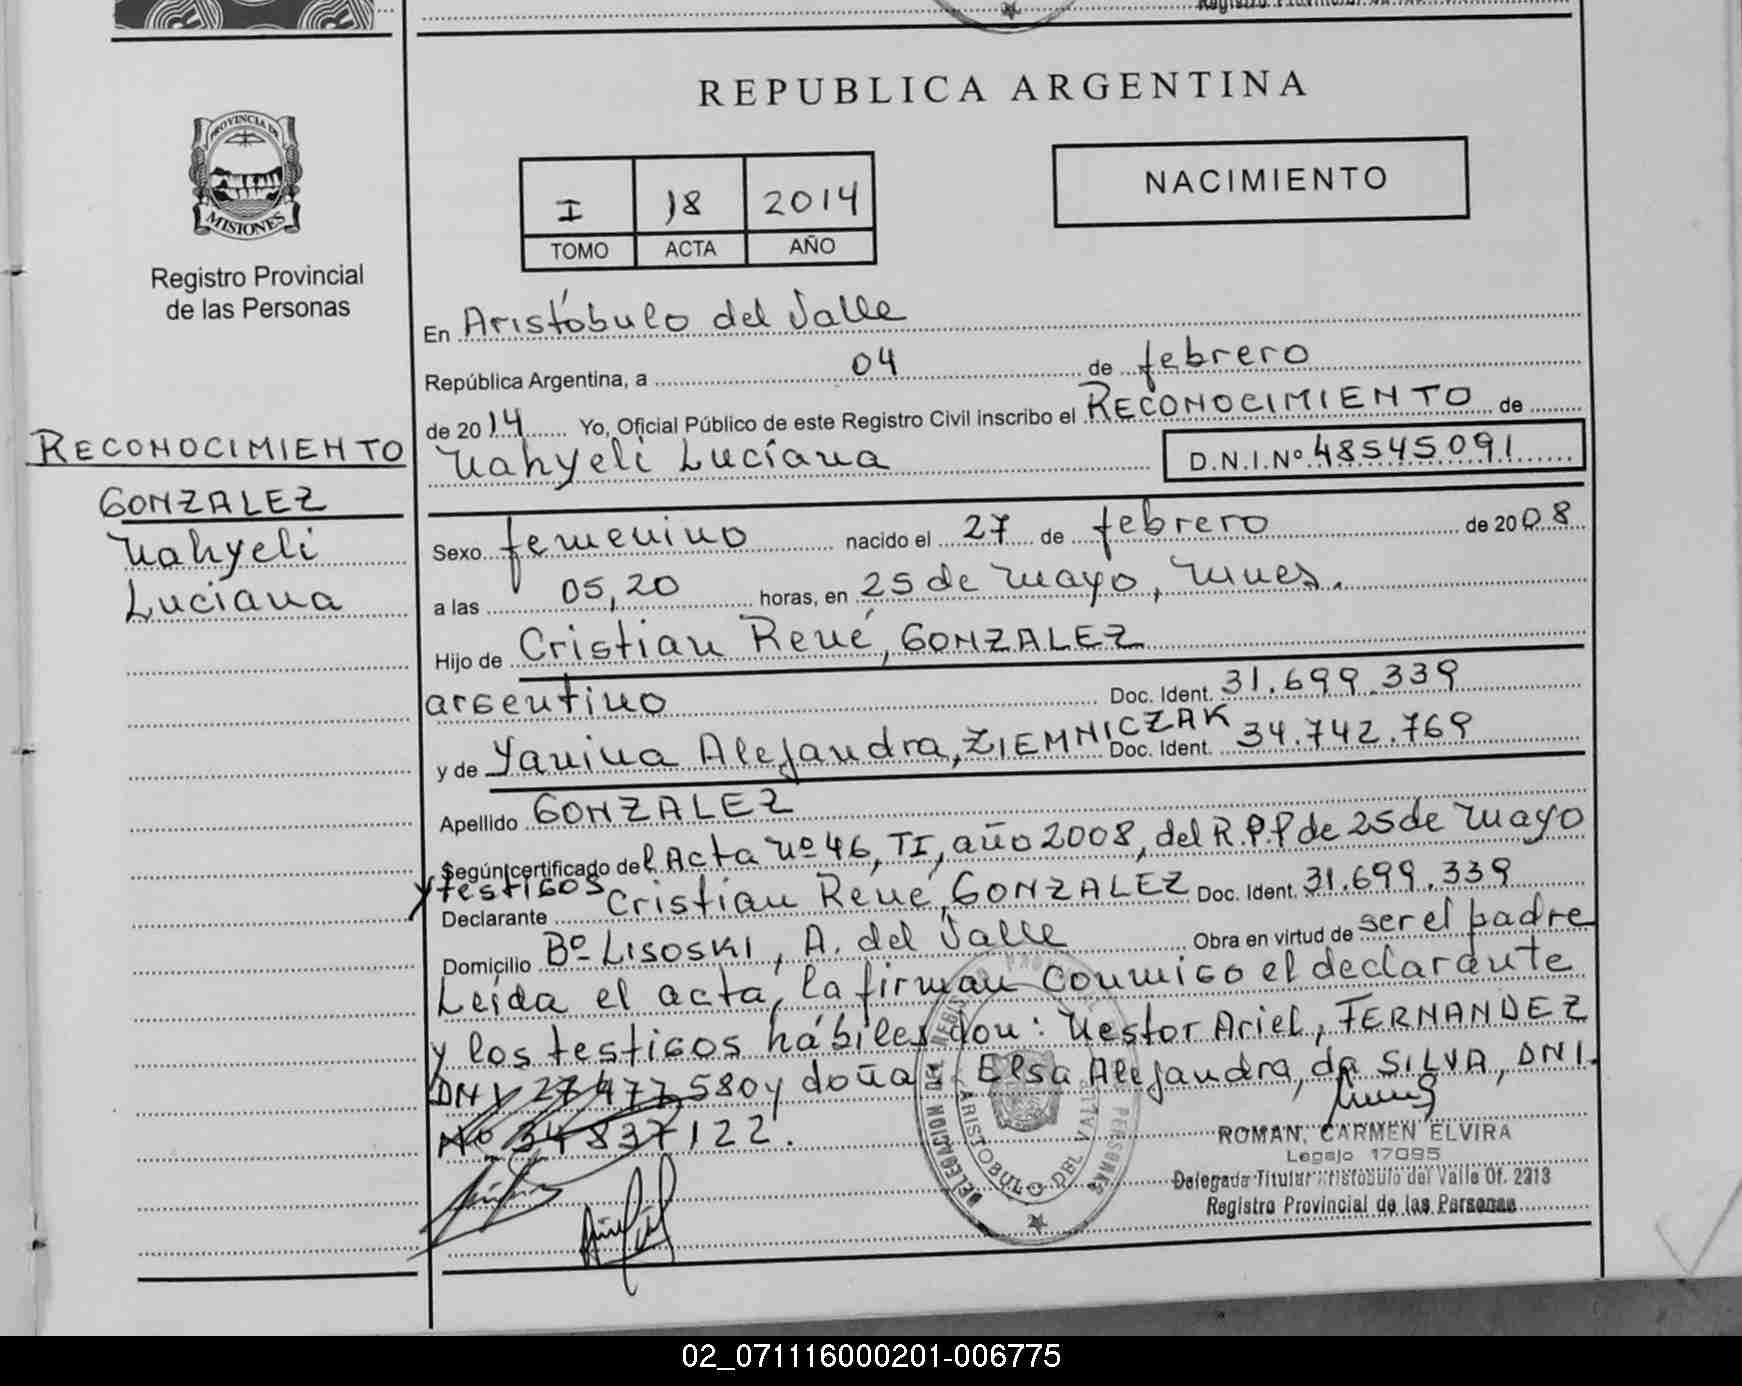 REPUBLICA ARGENTINA
NACIMIENTO
I 18 2014
TOMO ACTA AÑO
PROVINCIA DE
MISIONES
Registro Provincial
de las Personas
RECONOCIMIENTO
GONZALEZ
Nahyeli
Luciana
En Aristóbulo del Valle
República Argentina, a 04 de febrero
de 2014 Yo, Oficial Público de este Registro Civil inscribo el RECONOCIMIENTO de
Nahyeli Luciana D.N.I.Nº 48545091
Sexo femenino nacido el 27 de febrero de 2008
a las 05,20 horas, en 25 de Mayo, Mnes.
Hijo de Cristian René, GONZALEZ
argentino Doc. Ident. 31.699.339
y de Yanina Alejandra, ZIEMNICZAK Doc. Ident. 34.742.769
Apellido GONZALEZ
Según certificado del Acta Nº 46, TI, año 2008, del R.P.P de 25 de Mayo
y testigos
Declarante Cristian René, GONZALEZ Doc. Ident. 31.699.339
Domicilio Bº Lisoski, A. del Valle Obra en virtud de ser el padre
Leída el acta, la firman conmigo el declarante
y los testigos hábiles don: Nestor Ariel, FERNANDEZ
DNI 27477580 y doña: Elsa Alejandra, da SILVA, DNI.
Nº 34837122.
ROMAN, CARMEN ELVIRA
Legajo 17095
Delegada Titular Aristobulo del Valle Of. 2213
Registro Provincial de las Personas
DELEGACION DEL
PERSONAS
ARISTOBULO DEL VALLE
02_071116000201-006775